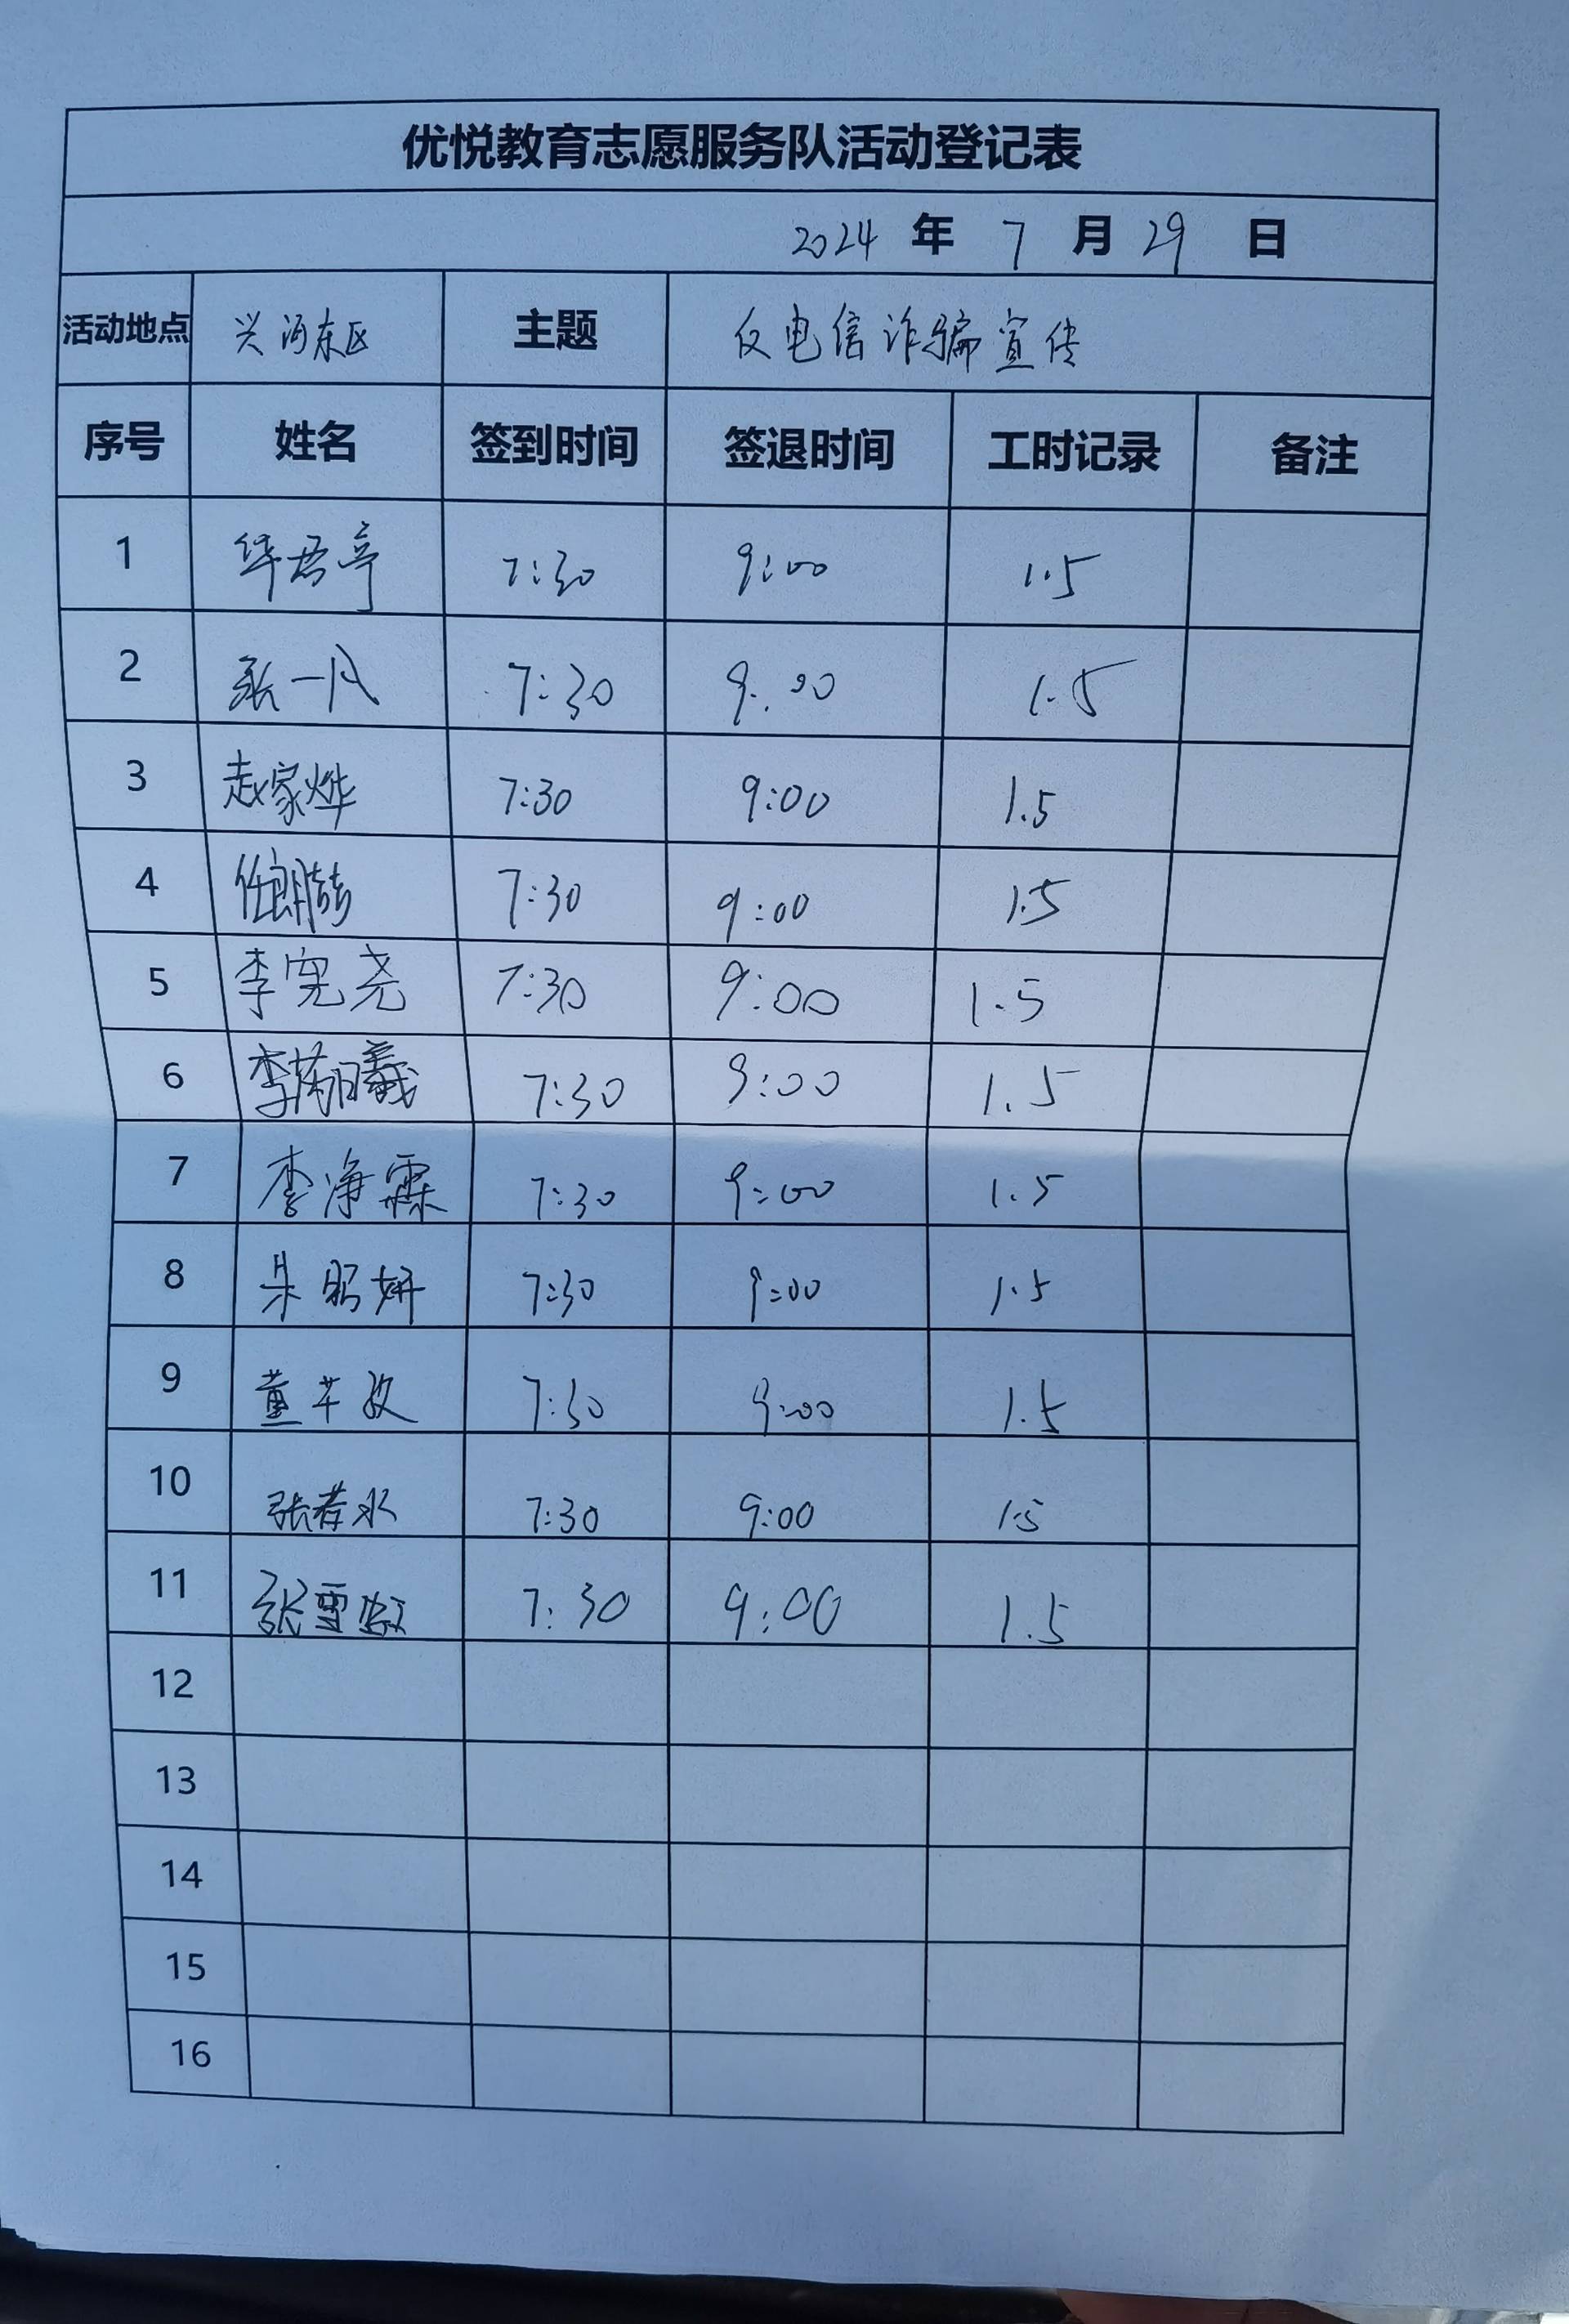 优悦教育志愿服务队活动登记表
2024 年 7 月 29 日
活动地点 兴河东区 主题 反电信诈骗宣传
序号 姓名 签到时间 签退时间 工时记录 备注
1 华君亭 7:30 9:00 1.5
2 张一凡 7:30 9:00 1.5
3 赵家烨 7:30 9:00 1.5
4 任朗喆 7:30 9:00 1.5
5 李宪尧 7:30 9:00 1.5
6 李芮曦 7:30 9:00 1.5
7 李净霖 7:30 9:00 1.5
8 朱昭妍 7:30 9:00 1.5
9 董芊孜 7:30 9:00 1.5
10 张若水 7:30 9:00 1.5
11 张雪 7:30 9:00 1.5
12
13
14
15
16